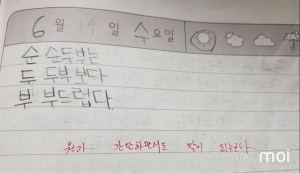 6월 일 수요일
순 순두부는
두 두부보다
부 부드럽다.
뭔가 간단하면서도 말이 되는구나
moi